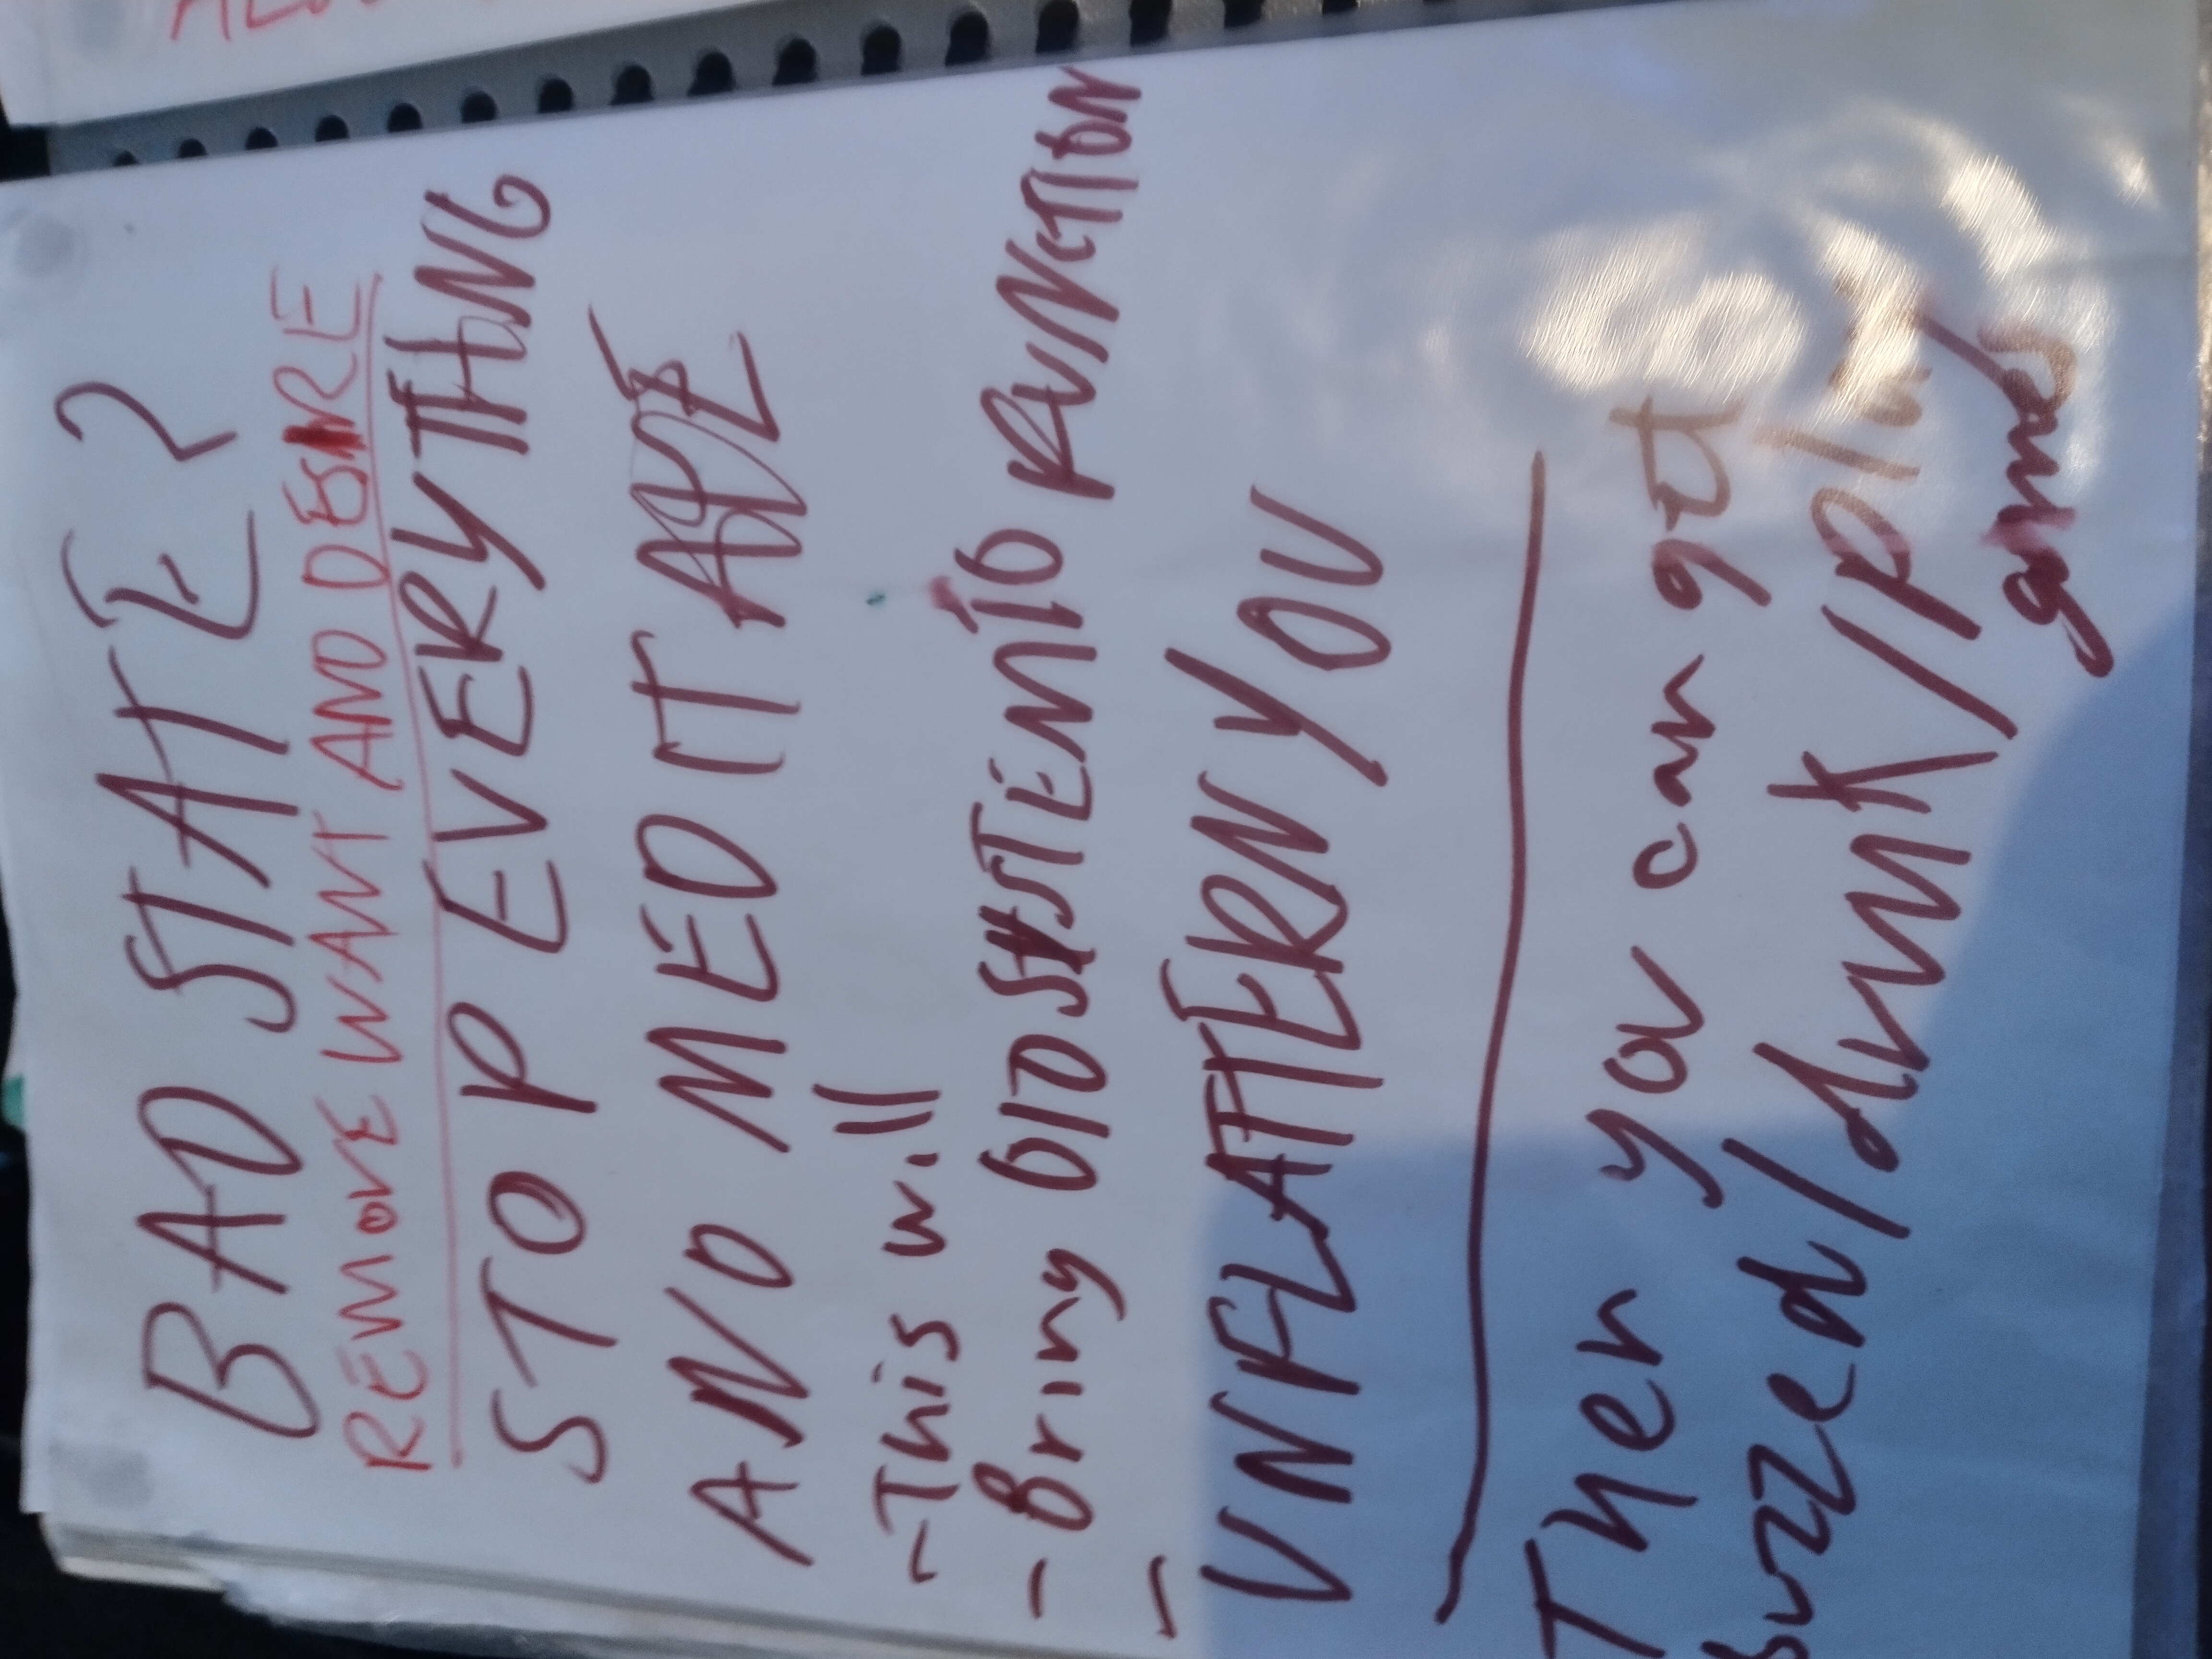 BAD STATE?
REMOVE WANT AND DESIRE
STOP EVERYTHING
AND MEDITATE
- This will
- Bring OLD SYSTEMIC FUNCTION
- UNFLATTERN YOU
Then you can get
buzzed/drunk/play
games